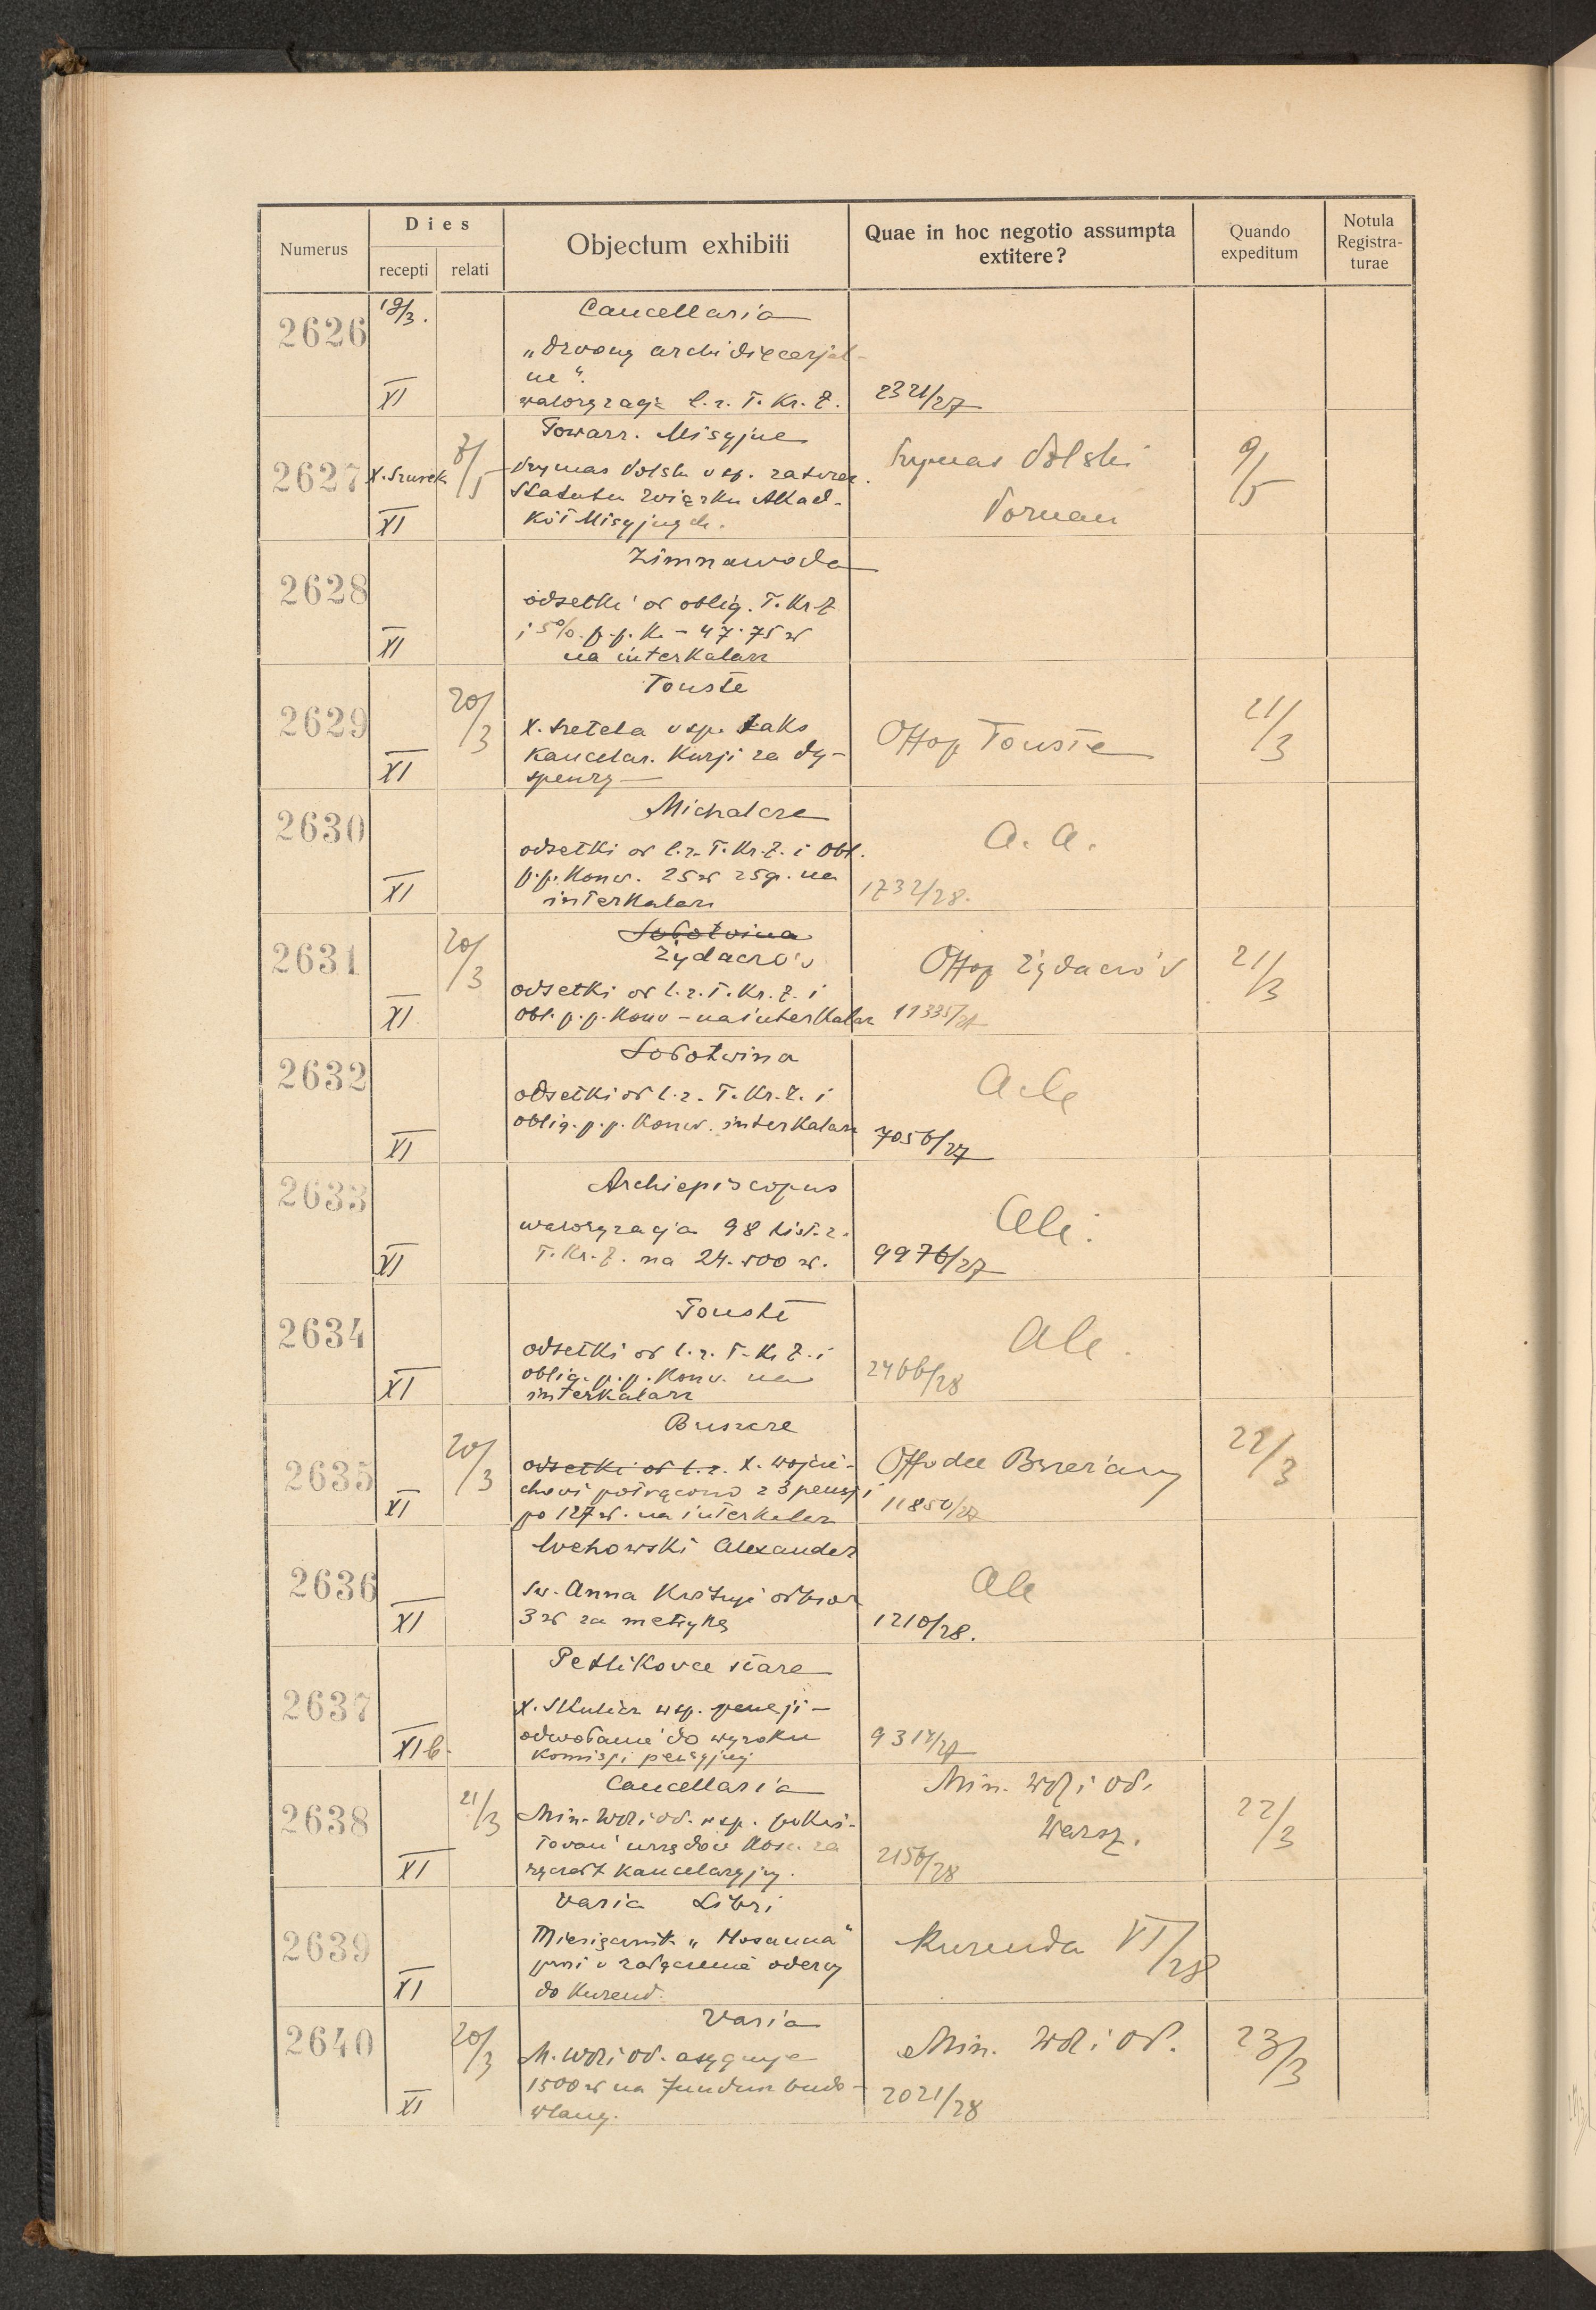 Numerus
Dies
recepti
relati
Objectum exhibiti
Quae in hoc negotio assumpta
extitere?
Quando
expeditum
Notula
Registra-
turae
2626
19/3.
XI
Cancellaria
„Dzwony archidiecezjal-
ne".
waloryzacja l.z. T. Kr. Z.
2321/27
2627
X. Szurek
XI
7/5
Towarz. Misyjne
Prymas Polski wsp. zatwier.
Statutu Związku Akad.
Kół Misyjnych.
Prymas Polski
Poznań
9/5
2628
XI
Zimnawoda
odsetki od oblig. T. Kr. Z
i 5%. p.p. K. – 47.75 zł
na interkalarz
2629
XI
20/3
Touste
X. Tretela wsp. taks
Kancelar. Kurji za dy-
spenzy
Offop Touste
21/3
2630
XI
Michalcze
odsetki od l.z. T. Kr. Z. i obl.
p.p. Konw. 25 zł 25 gr. na
interkalarz
a. a.
1732/28.
2631
XI
20/3
Sołotwina
Żydaczów
odsetki od l.z. T. Kr. Z. i
obl. p.p. Konw – na interkalar
Offop Żydaczów
11335/
21/3
2632
XI
Sołotwina
odsetki od l.z. T. Kr. Z. i
oblig. p.p. Konw. interkalarz
7056/27
2633
XI
Archiepiscopus
waloryzacja 98 list. z.
T. Kr. Z. na 24.500 zł.
9976/27
2634
XI
Touste
odsetki od l.z. T. Kr Z. i
oblig. p.p. Konw. na
interkalarz
2466/28
2635
XI
20/3
Buszcze
odsetki od l.z. X. Wojcie-
chowi potrącono z 3 pensji
po 127 zł. na interkalar
Offodec Brzeżany
11850/27
22/3
2636
XI
Alexander
św. Anna odbiór
3 zł za metrykę
1210/28.
2637
XIb.
Petlikowce stare
X. Skulicz wsp. pensji –
odwołanie do wyroku
Komisji pensyjnej
9314/27
2638
XI
21/3
Cancellaria
Min. WR i OP. wsp. pokwi-
towań urzędów Kośc. za
ryczałt kancelaryjny.
Min. WR i OP.
Warsz.
2156/28
22/3
2639
XI
Varia Libri
Miesięcznik „Hosanna"
prosi o załączenie odezwy
do Kurend.
Kurenda VI/28
2640
XI
20/3
Varia
M. WR i OP. asygnuje
1500 zł na fundusz budo-
wlany.
Min. WR i OP.
2021/28
23/3